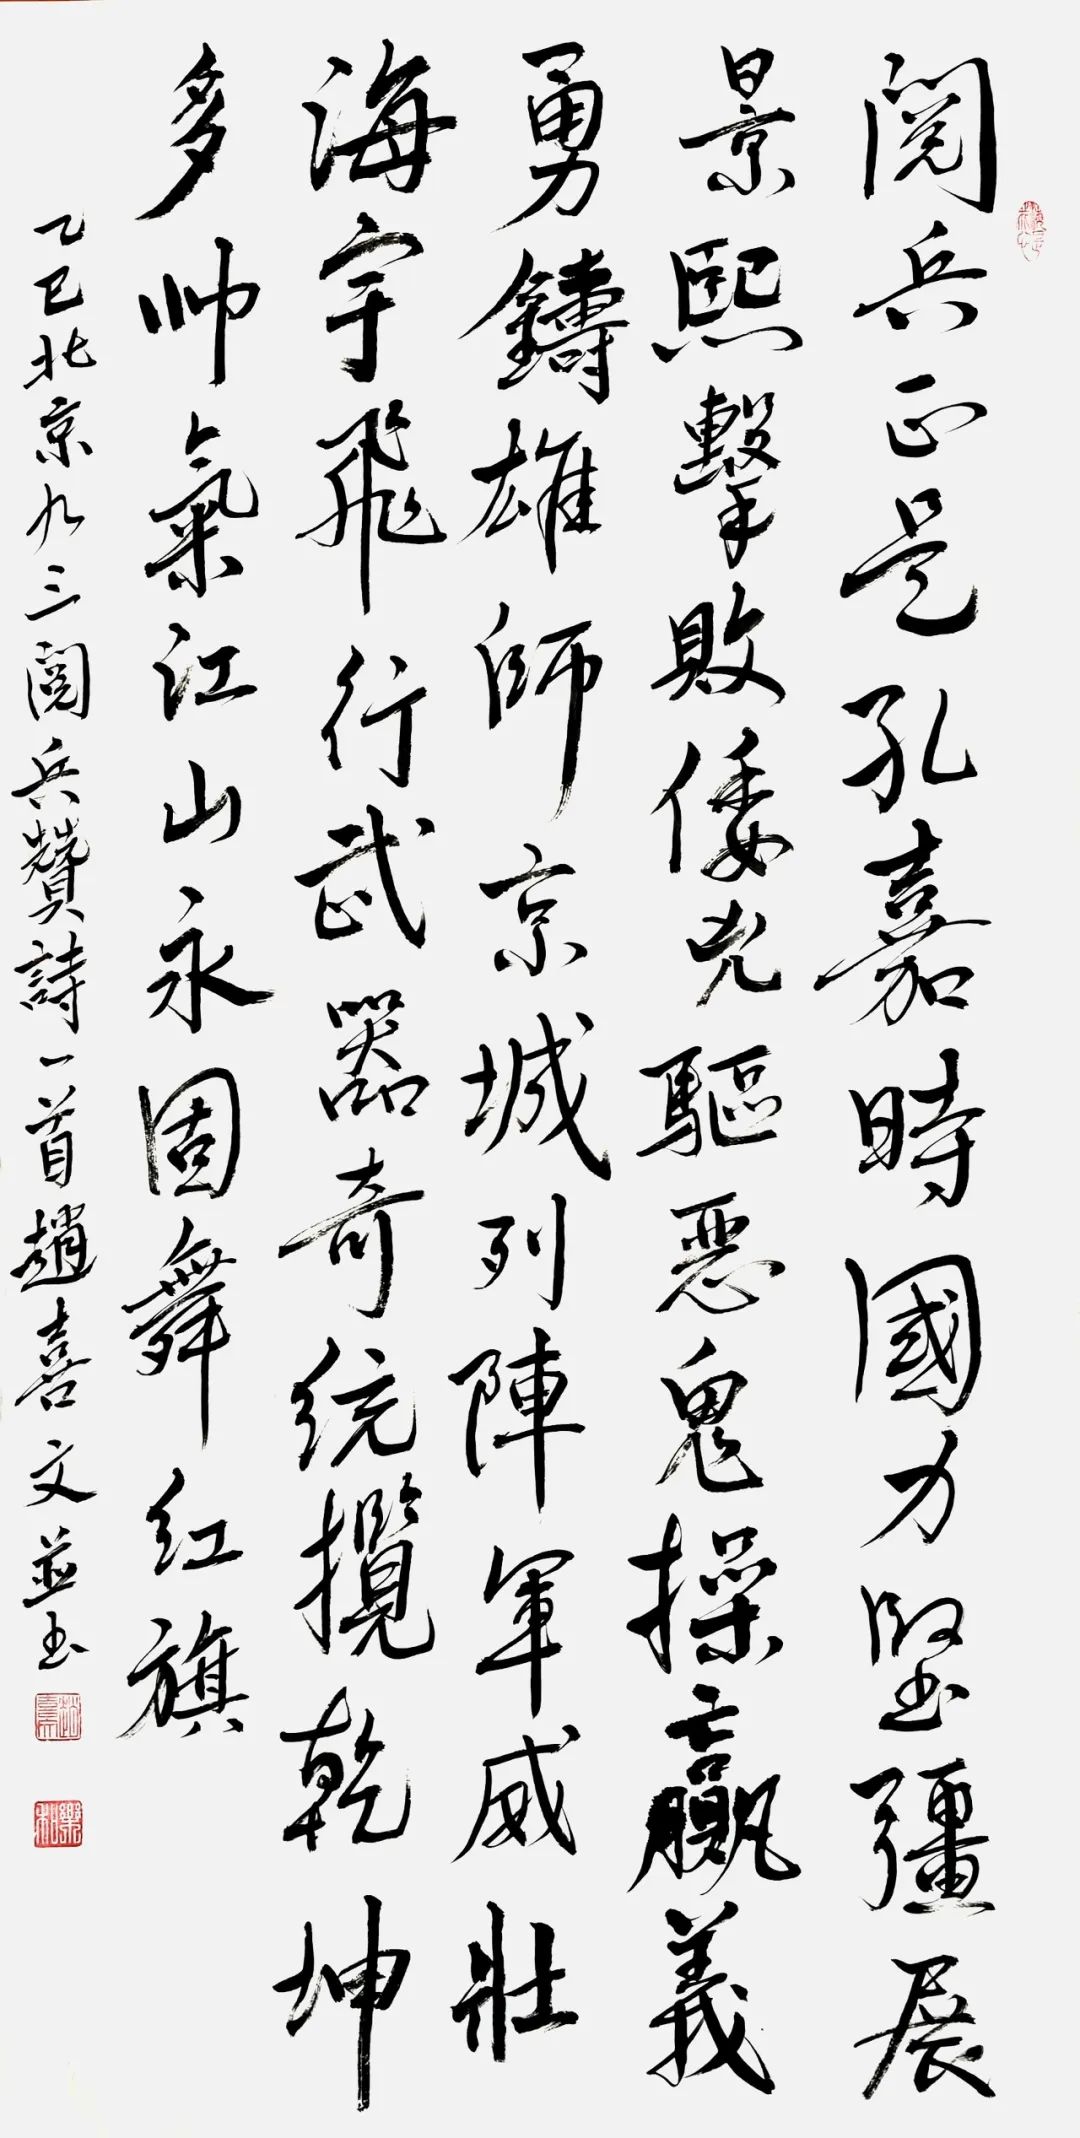 閱兵正是孔嘉時國力堅彊展
景熙擊敗倭兇驅惡鬼操贏義
勇鑄雄師京城列陣軍威壯
海宇飛行武器奇統攬乾坤
多帥氣江山永固舞红旗
乙巳北京九三閱兵贊詩一首趙喜文並书